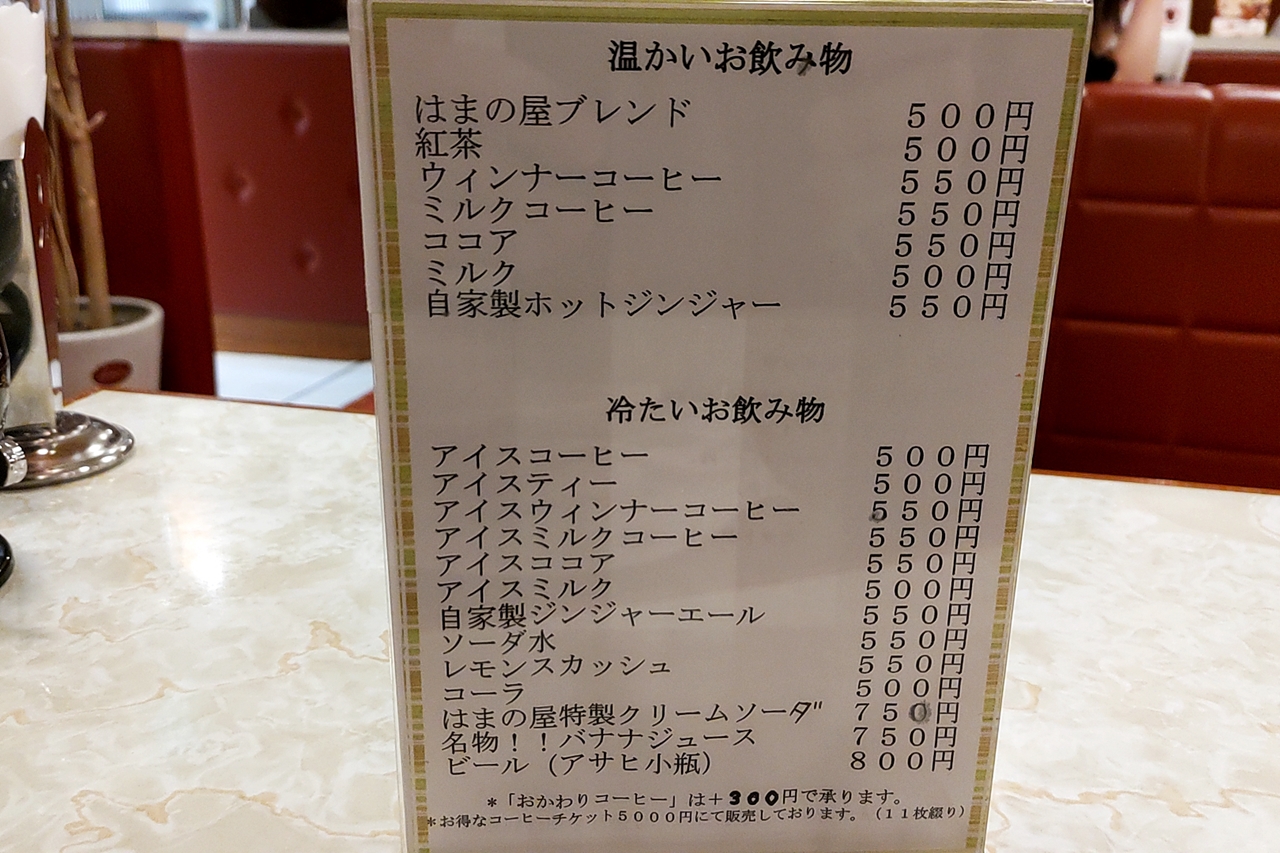 温かいお飲み物
はまの屋ブレンド ５００円
紅茶 ５００円
ウィンナーコーヒー ５５０円
ミルクコーヒー ５５０円
ココア ５５０円
ミルク ５００円
自家製ホットジンジャー ５５０円
冷たいお飲み物
アイスコーヒー ５００円
アイスティー ５００円
アイスウィンナーコーヒー ５５０円
アイスミルクコーヒー ５５０円
アイスココア ５５０円
アイスミルク ５００円
自家製ジンジャーエール ５５０円
ソーダ水 ５５０円
レモンスカッシュ ５５０円
コーラ ５００円
はまの屋特製クリームソーダ ７５０円
名物！！バナナジュース ７５０円
ビール（アサヒ小瓶） ８００円
＊「おかわりコーヒー」は＋300円で承ります。
＊お得なコーヒーチケット５０００円にて販売しております。（１１枚綴り）